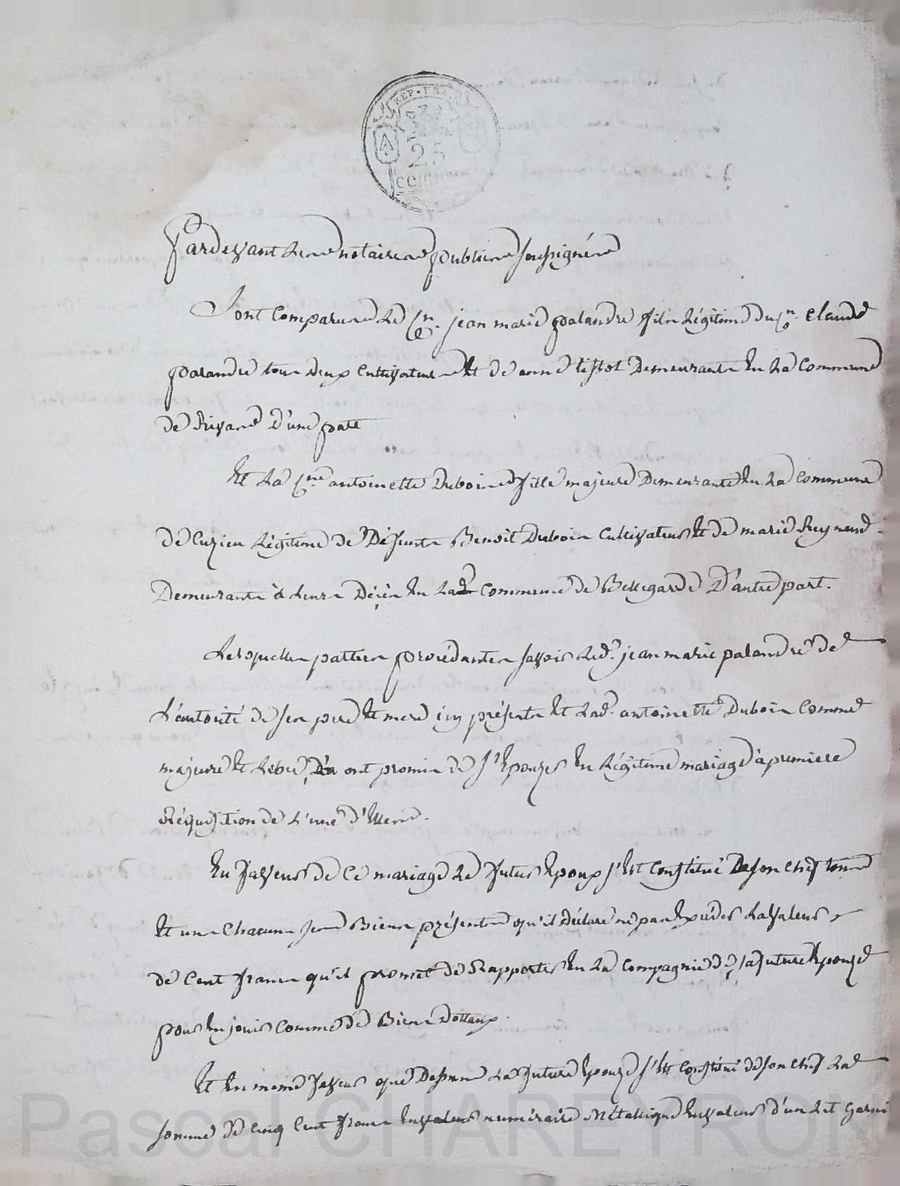 REP. FRA
25
cent
Pardevant Les notaires publics soussignés
Sont Comparus Le Cen. jean marie palandre fils Légitime du Cen. Claude
palandre tous deux Cultivateurs Et de anne tissot Demeurants En La Commune
de Rivas d'une part
Et La Cne antoinette Dubois fille majeure Demeurante En La Commune
de Cuzieu Légitime de Défunts Benoit Dubois Cultivateur Et de marie Reynaud
Demeurants à Leurs Décès En Lade Commune de Bellegarde D'autre part.
Lesquelles parties procédantes savoir Led. jean marie palandre de
L'autorité de ses pere Et mere icy présents Et Lad. antoinette Dubois Comme
majeure Et Libre, ont promis de S'Epouzer En Légitime mariage à premiere
Réquisition de L'une d'Elles.
En faveur de Ce mariage Le futur Epoux s'est Constitué De son Chef tous
Et uns Chacuns ses Biens présents qu'il Déclare ne pas Exceder La valeur
de Cent francs qu'il promet de Rapporter En La Compagnie de sa future Epouze
pour En jouir Comme de Biens Dottaux.
Et En meme faveur que Dessus La future Epouze s'est Constitué de son Chef La
somme de Cinq Cent francs En valeur numéraire Métallique En valeur d'un Lit Garni
Pascal CHAREYRON